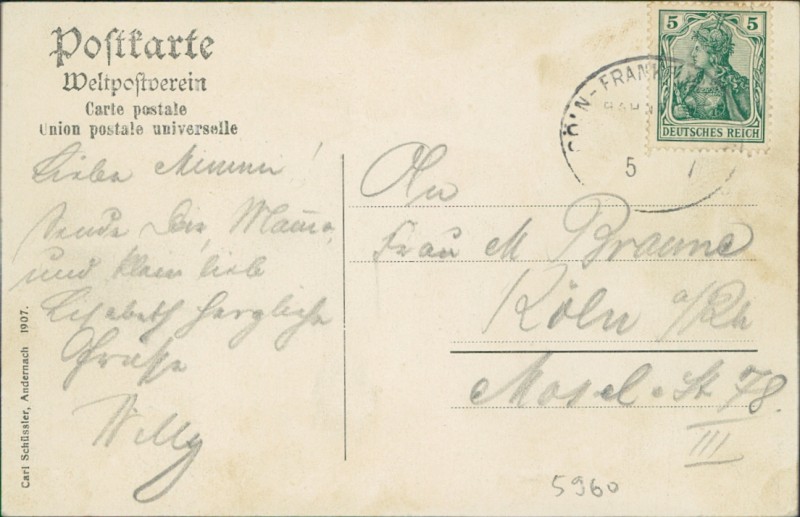 Postkarte
Weltpostverein
Carte postale
Union postale universelle
Liebe Mimmi!
Sende Dir, Mama,
und klein lieb
Lisabeth herzliche
Grüsse
Willy
An
Frau M Braune
Köln a/Rh
Mosel-St 78.
III
5
5
DEUTSCHES REICH
CÖLN-FRANK
BAHN
5
5960
Carl Schüssler, Andernach 1907.